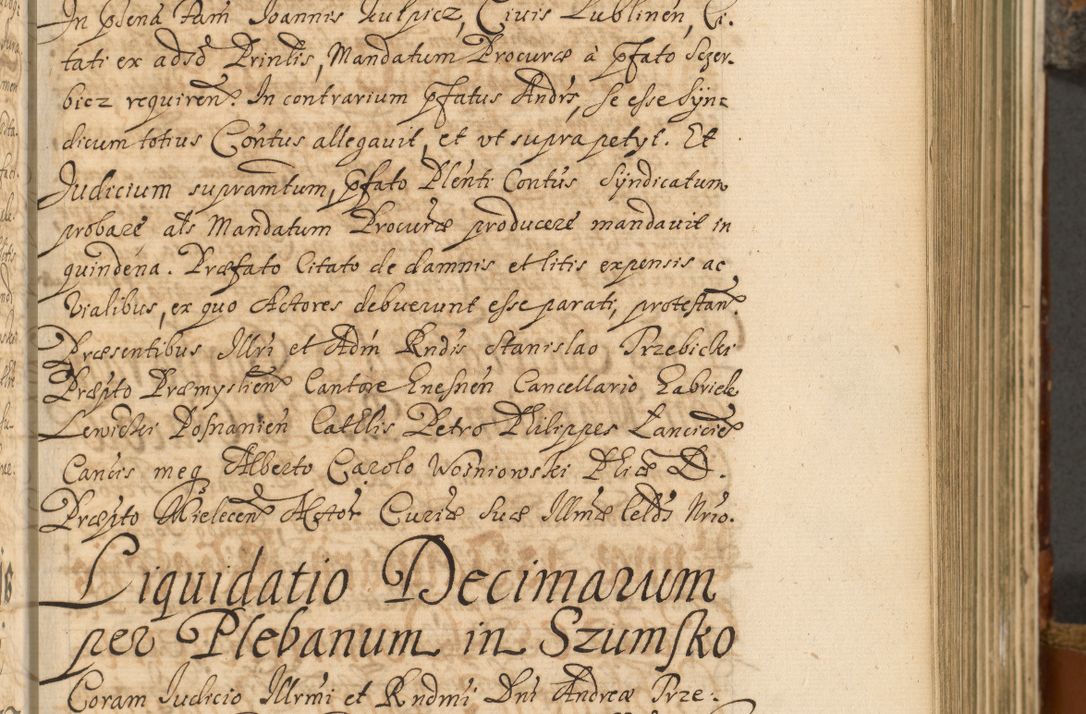 In pñtia Fam Joannis Kulpicz, Civis Lublineñ, Ci-
tati ex adsō Printis, Mandatum Procuræ à pfato Sczer-
bicz requireñ. In contrarium pfatus Andrs, se esse Syn-
dicum totius Contus allegavit, et vt supra petyt. Et
Judicium supramtum, pfato Plenti Contus Syndicatum
probare als Mandatum Procuræ producere mandavit in
quindena. Præfato Citato de damnis et litis expensis ac
Vialibus, ex quo Actores debuerunt esse parati, protestañ.
Præsentibus Illri et Adm Rndis Stanislao Trzebicki
Præpto Præmyslieñ Cantore Gnesneñ Cancellario Gabriele
Lewicki Posnanieñ Cathlis Petro Philippes Lancicieñ
Cancis meq Alberto Carolo Wosniowski Phiæ D.
Præpto Mieleceñ Actor Curiæ Suæ Illmæ Celds Nrio.
Liquidatio Decimarum
per Plebanum in Szumsko
Coram Judicio Illrmi et Rndmi Dni Andreæ Trze-